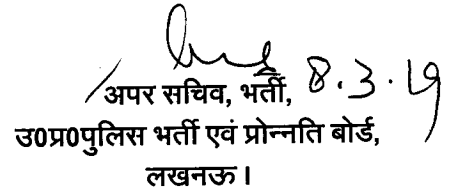 8.3.19
अपर सचिव, भर्ती,
उ0प्र0पुलिस भर्ती एवं प्रोन्नति बोर्ड,
लखनऊ।